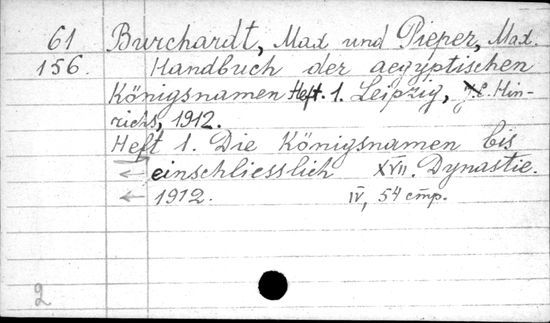 61 Burchardt, Max und Pieper, Max.
156. Handbuch der aegyptischen
Königsnamen Heft. 1. Leipzig, Hin-
richs, 1912.
Heft 1. Die Königsnamen bis
← einschliesslich XVII. Dynastie.
← 1912. IV, 54 стр.
2